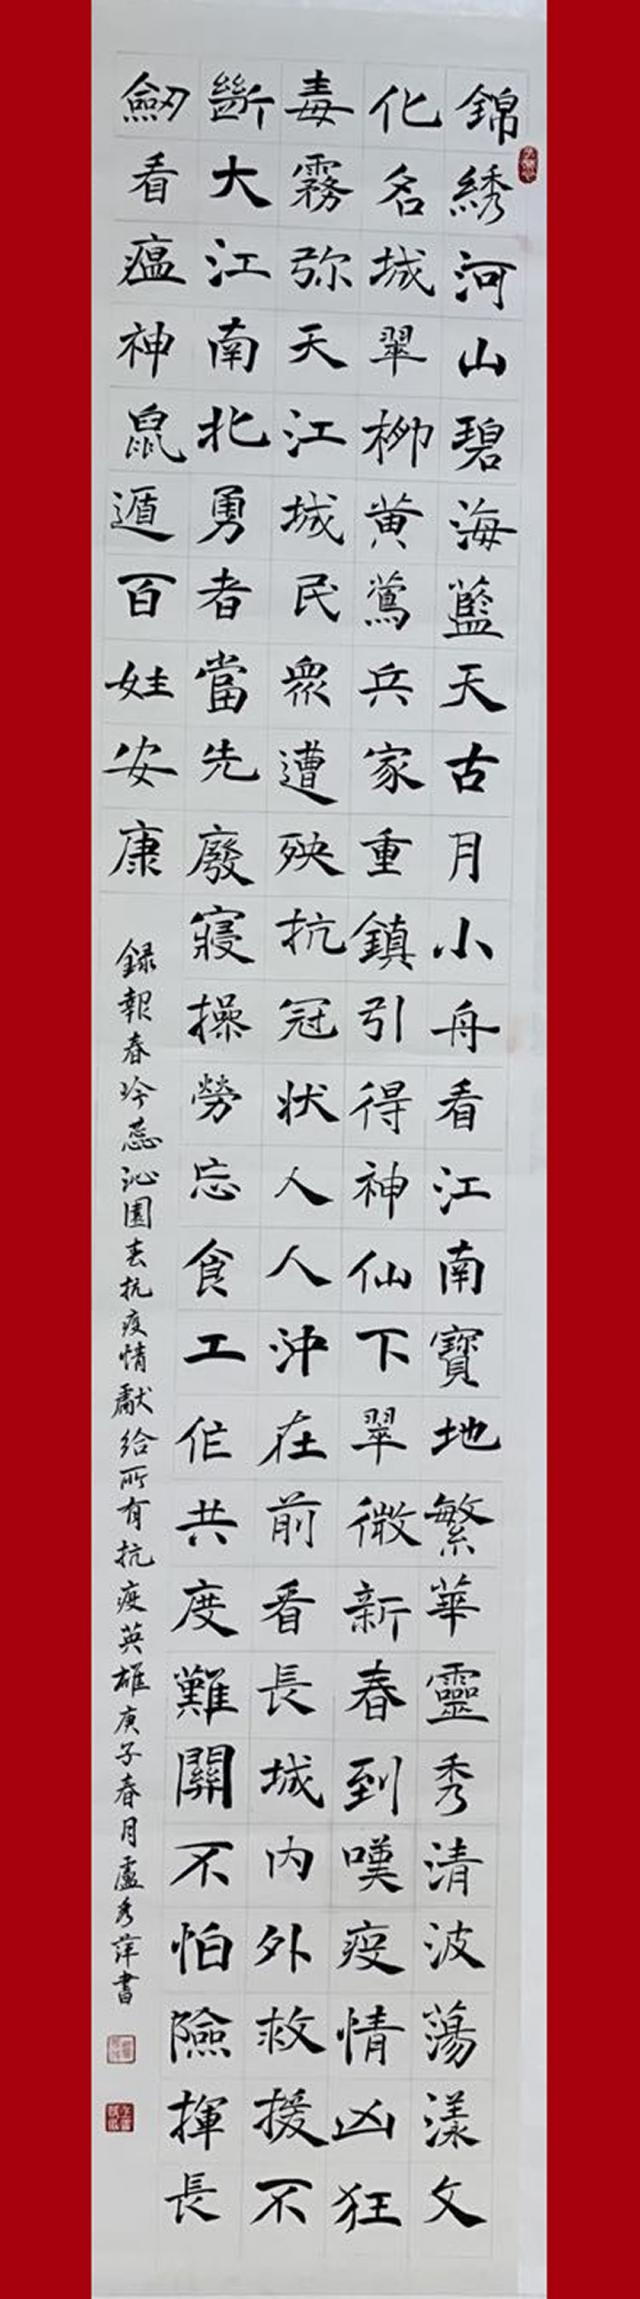 錦綉河山碧海藍天古月小舟看江南寶地繁華靈秀清波蕩漾文
化名城翠柳黄鶯兵家重鎮引得神仙下翠微新春到嘆疫情凶狂
毒霧弥天江城民衆遭殃抗冠状人人沖在前看長城内外救援不
斷大江南北勇者當先廢寢操勞忘食工作共度難關不怕險揮長
劒看瘟神鼠遁百姓安康
録報春吟蕊沁園春抗疫情獻給所有抗疫英雄庚子春月盧秀萍書